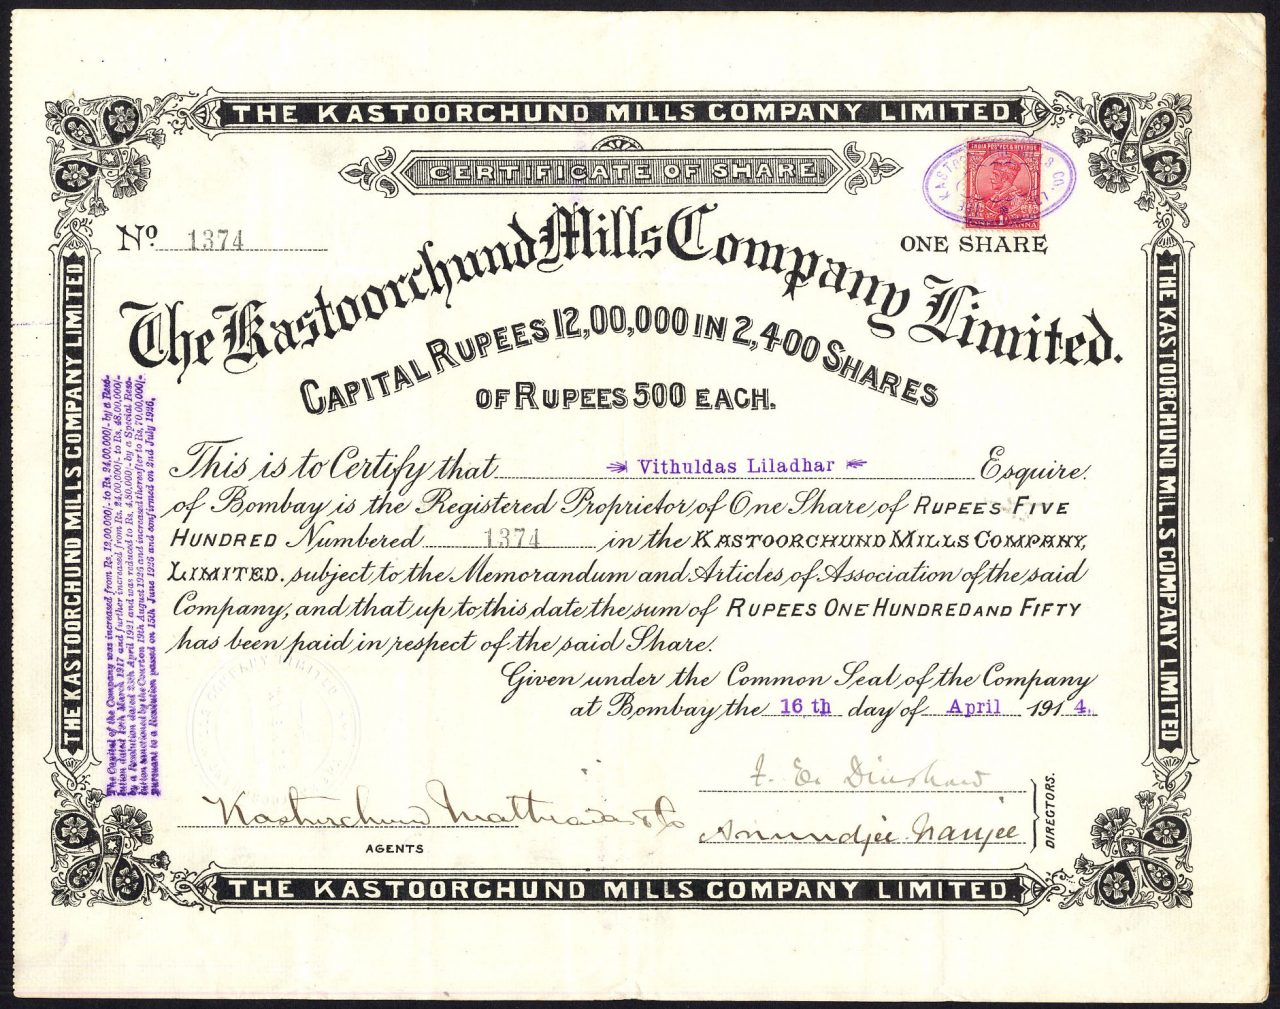 THE KASTOORCHUND MILLS COMPANY LIMITED.
CERTIFICATE OF SHARE.
INDIA POSTAGE & REVENUE
No 1374
ONE SHARE
The Kastoorchund Mills Company Limited.
CAPITAL RUPEES 12,00,000 IN 2,400 SHARES
OF RUPEES 500 EACH.
This is to Certify that Vithuldas Liladhar Esquire.
of Bombay is the Registered Proprietor of One Share of RUPEES FIVE
HUNDRED Numbered 1374 in the KASTOORCHUND MILLS COMPANY,
LIMITED. subject to the Memorandum and Articles of Association of the said
Company, and that up to this date the sum of RUPEES ONE HUNDRED AND FIFTY
has been paid in respect of the said Share.
Given under the Common Seal of the Company
at Bombay the 16 th day of April 1914.
F. E. Dinshaw
Kasturchund & Co
Anundjee Nanjee
AGENTS
DIRECTORS.
THE KASTOORCHUND MILLS COMPANY LIMITED
THE KASTOORCHUND MILLS COMPANY LIMITED
THE KASTOORCHUND MILLS COMPANY LIMITED.
The Capital of the Company was increased from Rs. 12,00,000/- to Rs. 24,00,000/- by a Reso-
lution dated March 1917 and further increased from Rs. 24,00,000/- to Rs. 48,00,000/-
by a Resolution dated April 1921 and was reduced to Rs. 4,80,000/- by a Special Reso-
lution sanctioned by the Court on 19th August 1925 and increased thereafter to Rs. 70,00,000/-
pursuant to a Resolution passed on 15th June 1926 and confirmed on 2nd July 1926.